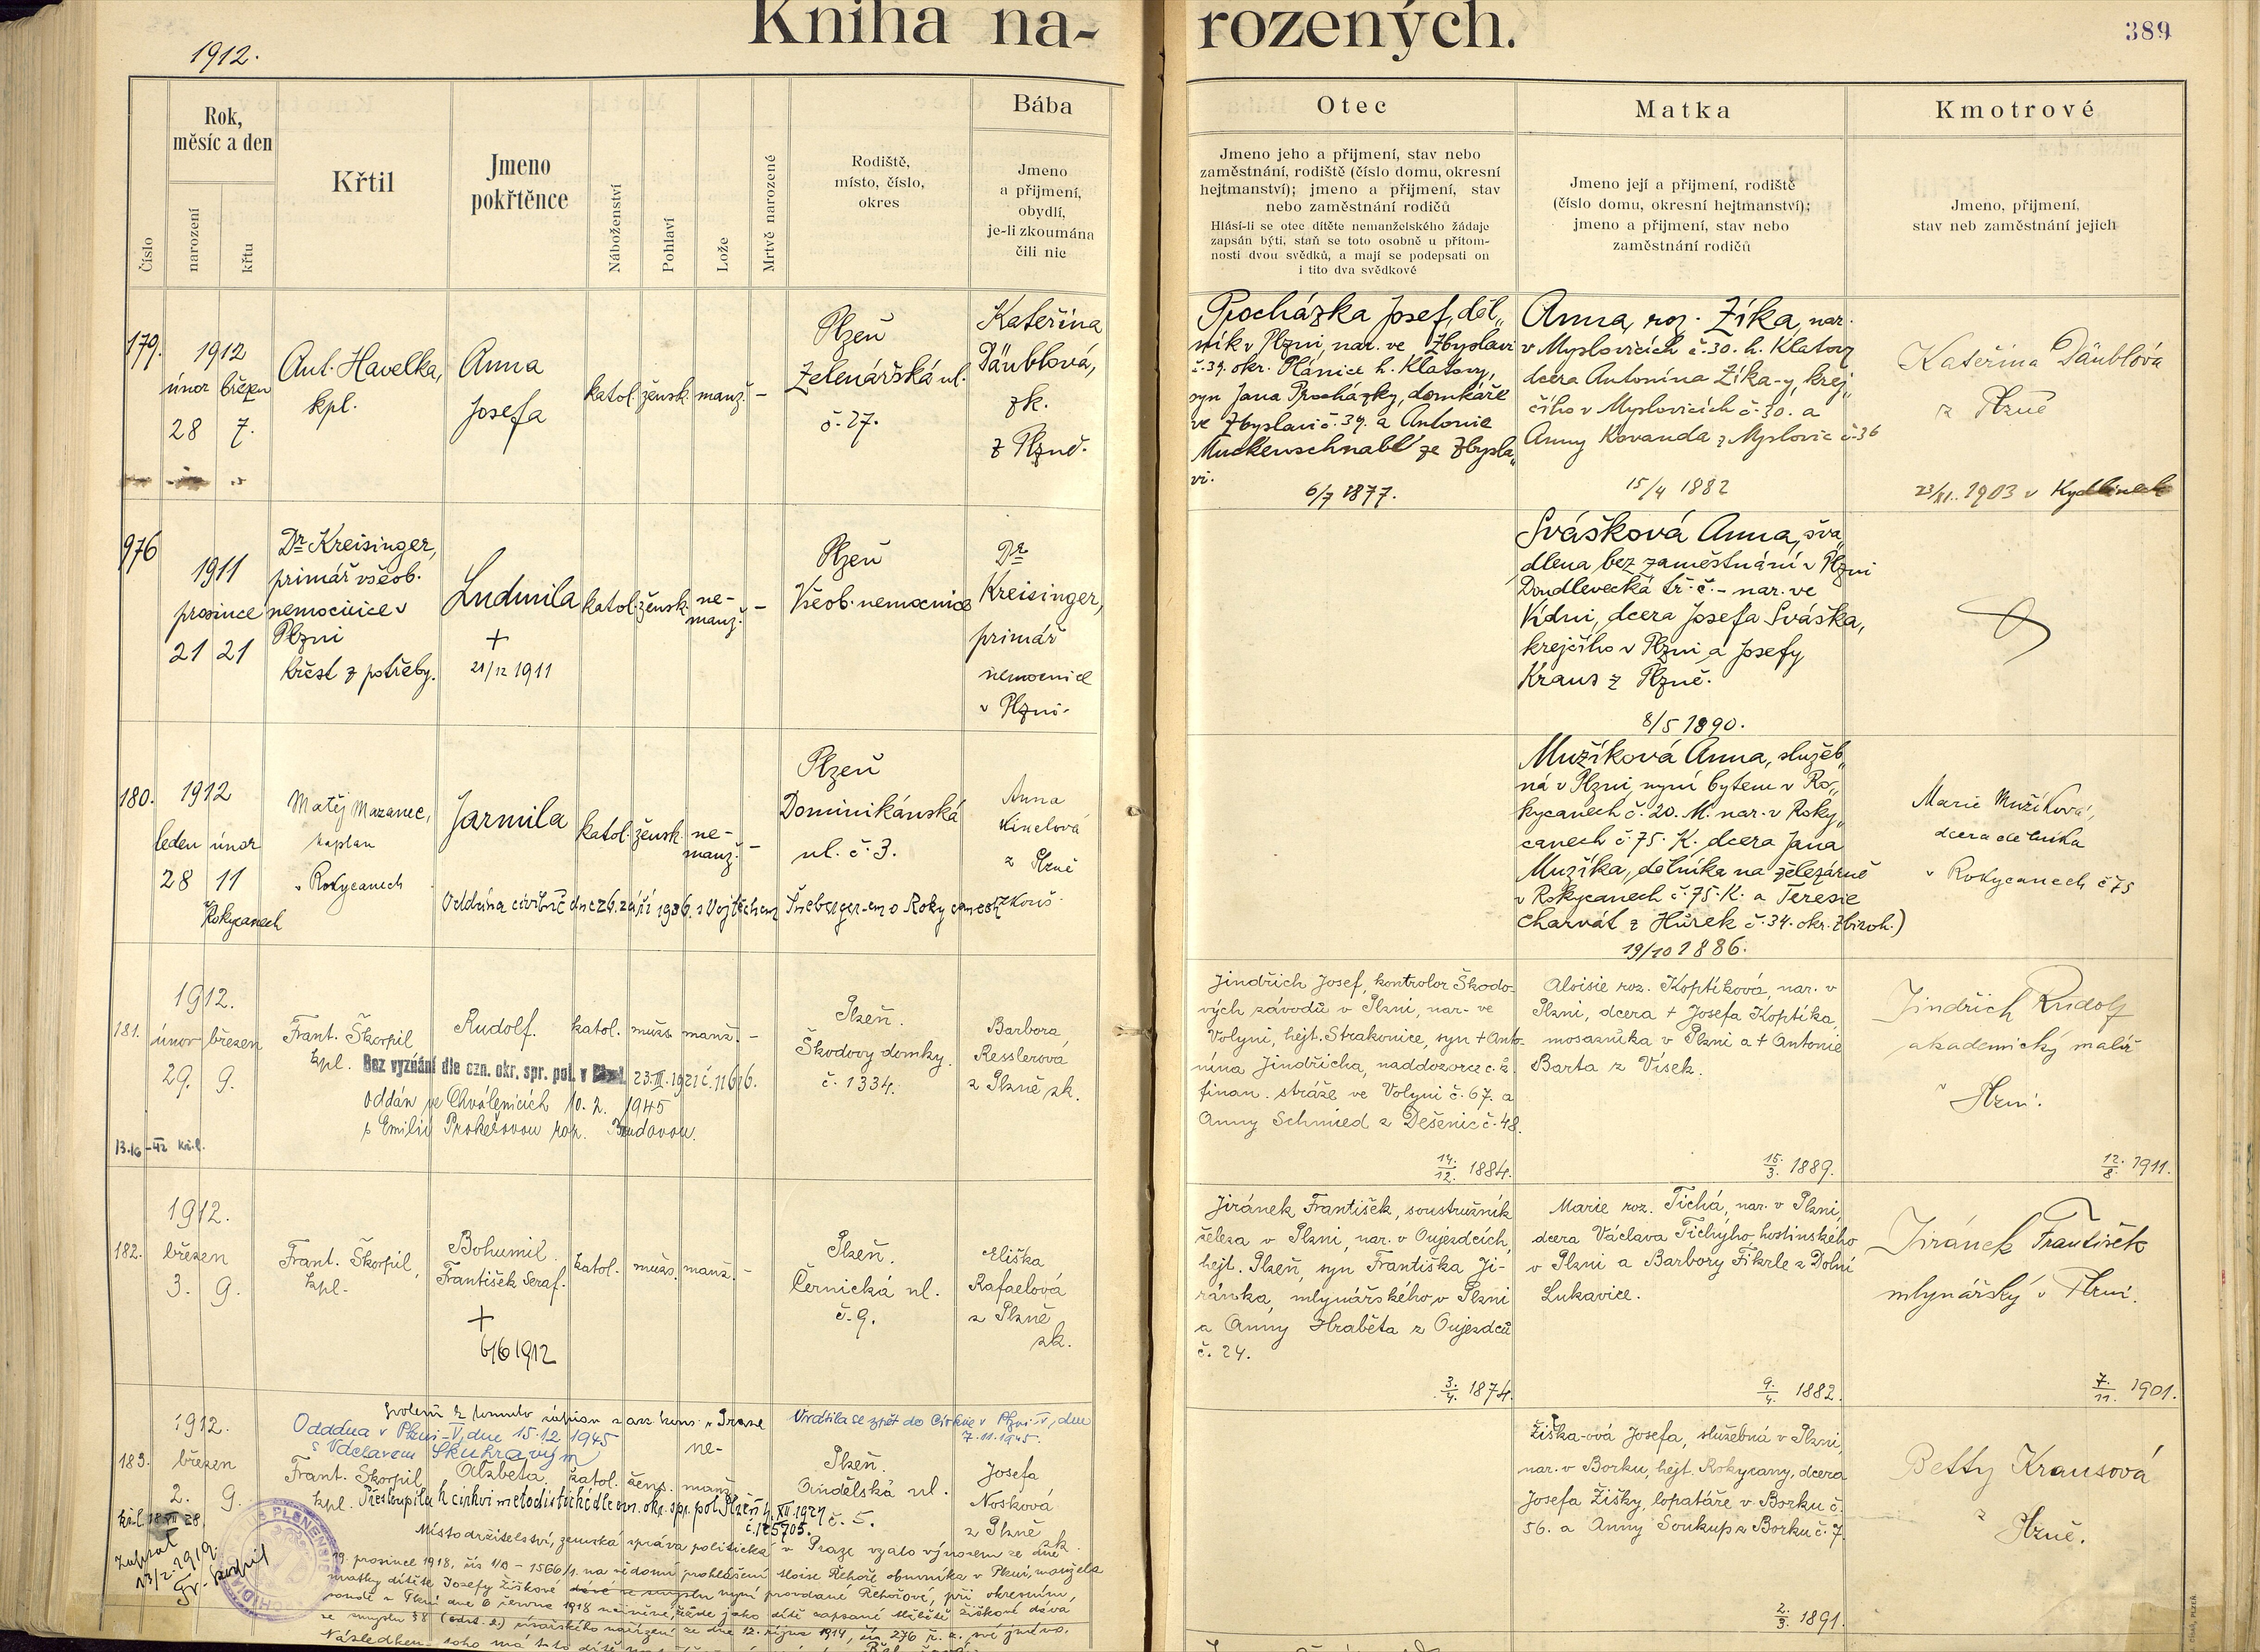 Kniha na-
rozených.
389
1912.
Číslo
Rok,
měsíc a den
narození
křtu
Křtil
Jmeno
pokřtěnce
Náboženství
Pohlaví
Lože
Mrtvě narozené
Rodiště,
místo, číslo,
okres
Bába
Jmeno
a přijmení,
obydlí,
je-li zkoumána
čili nic
Otec
Jmeno jeho a přijmení, stav nebo
zaměstnání, rodiště (číslo domu, okresní
hejtmanství); jmeno a přijmení, stav
nebo zaměstnání rodičů
Hlásí-li se otec dítěte nemanželského žádaje
zapsán býti, staň se toto osobně u přítom-
nosti dvou svědků, a mají se podepsati on
i tito dva svědkové
Matka
Jmeno její a přijmení, rodiště
(číslo domu, okresní hejtmanství);
jmeno a přijmení, stav nebo
zaměstnání rodičů
Kmotrové
Jmeno, přijmení,
stav neb zaměstnání jejich
179.
1912
únor březen
28 7.
Ant. Havelka,
kpl.
Anna
Josefa
katol. žensk. manž. –
Plzeň
Zelenářská ul.
č. 27.
Kateřina
Däublová,
zk.
z Plzně.
Procházka Josef, děl„
ník v Plzni, nar. ve Zbyslavi
č. 39. okr. Plánice h. Klatovy,
syn Jana Procházky, domkáře
ve Zbyslavi č. 39. a Antonie
Muckenschnabl ze Zbysla„
vi.
6/7 1877.
Anna, roz. Zíka, nar.
v Myslovicích č. 30. h. Klatovy
dcera Antonína Zíka-y, krej„
čího v Myslovicích č. 30. a
Anny Kovanda z Myslovic č. 36
15/4 1882
Kateřina Däublová
z Plzně
23/XI. 1903 v Kydlinech
976
1911
prosince
21 21
Dr Kreisinger,
primář všeob.
nemocnice v
Plzni
křest z potřeby.
Ludmila
+
21/12 1911
katol. žensk. ne-
manž. –
Plzeň
Všeob. nemocnice
Dr
Kreisinger,
primář
nemocnice
v Plzni.
Svášková Anna, šva„
dlena bez zaměstnání v Plzni
Doudlevecká tř. č. – nar. ve
Kdni, dcera Josefa Sváška,
krejčího v Plzni a Josefy
Kraus z Plzně.
8/5 1890.
180.
1912
leden únor
28 11
v Rokycanech
Matěj Mazanec,
kaplan
v Rokycanech
Jarmila
katol. žensk. ne-
manž. –
Plzeň
Dominikánská
ul. č. 3.
Anna
z Plzně
zkouš.
Oddána civilně dne 26. září 1936. s Vojtěchem Šneberger-em v Rokycanech
Mužíková Anna, služeb„
ná v Plzni, nyní bytem v Ro„
kycanech č. 20. M. nar. v Roky„
canech č. 75. K. dcera Jana
Mužíka, dělníka na železárně
v Rokycanech č. 75. K. a Teresie
Charvát z Hůrek č. 34. okr. Zbiroh.)
19/10 1886.
Marie Mužíková,
dcera dělníka
v Rokycanech č 75
181.
1912.
únor březen
29. 9.
Frant. Škorpil
kpl.
Rudolf.
katol. mužs. manž. –
Bez vyznání dle ozn. okr. spr. pol. v Plzni 23.III.1921 č. 11616.
Oddán ve Chválenicích 10. 2. 1945
s Emilií Prokešovou roz.
Plzeň.
Škodovy domky
č. 1334.
Barbora
Resslerová
z Plzně zk.
Jindřich Josef, kontrolor Škodo-
vých závodů v Plzni, nar. ve
Volyni, hejt. Strakonice, syn + Anto-
nína Jindřicha, naddozorce c. k.
finan. stráže ve Volyni č. 67. a
Anny Schmied z Dešenic č. 48.
14./12. 1884.
Aloisie roz. Koptíková, nar. v
Plzni, dcera + Josefa Koptíka,
mosazníka v Plzni a + Antonie
Barta z Vísek.
15./3. 1889.
Jindřich Rudolf
akademický malíř
v Plzni.
12./8. 1911.
182.
1912.
březen
3. 9.
Frant. Škorpil,
kpl.
Bohumil
František Seraf.
+
6/6 1912
katol. mužs. manž. –
Plzeň.
Černická ul.
č. 9.
Eliška
Rafaelová
z Plzně
zk.
Jiránek František, soustružník
železa v Plzni, nar. v Oujezdcích,
hejt. Plzeň, syn Františka Ji-
ránka, mlynářského v Plzni
a Anny Hraběta z Oujezdců
č. 24.
3./4. 1874.
Marie roz. Tichá, nar. v Plzni,
dcera Václava Tichýho, hostinského
v Plzni a Barbory Fikrle z Dolní
Lukavice.
9./4. 1882.
Jiránek František
mlynářský v Plzni.
7./11. 1901.
Oddána v Plzni-V, dne 15.12.1945
s Václavem Skuhravým
Vrátila se zpět do Církve v Plzni-V, dne
7.11.1945.
183.
1912.
březen
2. 9.
Frant. Škorpil
kpl.
Alžběta
katol. žens. ne-
manž.
Plzeň.
Andělská ul.
č. 5.
Josefa
Nosková
z Plzně
zk.
Přestoupila k církvi metodistické dle ozn. okr. spr. pol. Plzeň 4. XII. 1921
č. 125705.
Místodržitelství, zemská správa politická v Praze vzalo výnosem ze dne
19. prosince 1918, čís 1/A – 1566/1 na vědomí prohlášení Aloise Řehoře obuvníka v Plzni, manžela
matky dítěte Josefy Žiškové nyní provdané Řehořové, při okresním
soudě v Plzni dne 6 června 1918 učiněné,
ze smyslu § 8 císařského nařízení ze dne 12. října 1914, čís 276 ř. z. své jméno.
Následkem toho má toto dítě
zapsal
13/2. 1919.
Fr. Škorpil
Žiška-ová Josefa, služebná v Plzni,
nar. v Borku, hejt. Rokycany, dcera
Josefa Žišky, lopatáře v Borku č.
56. a Anny Soukup z Borku č. 7.
2./3. 1891.
Betty Krausová
z Plzně.